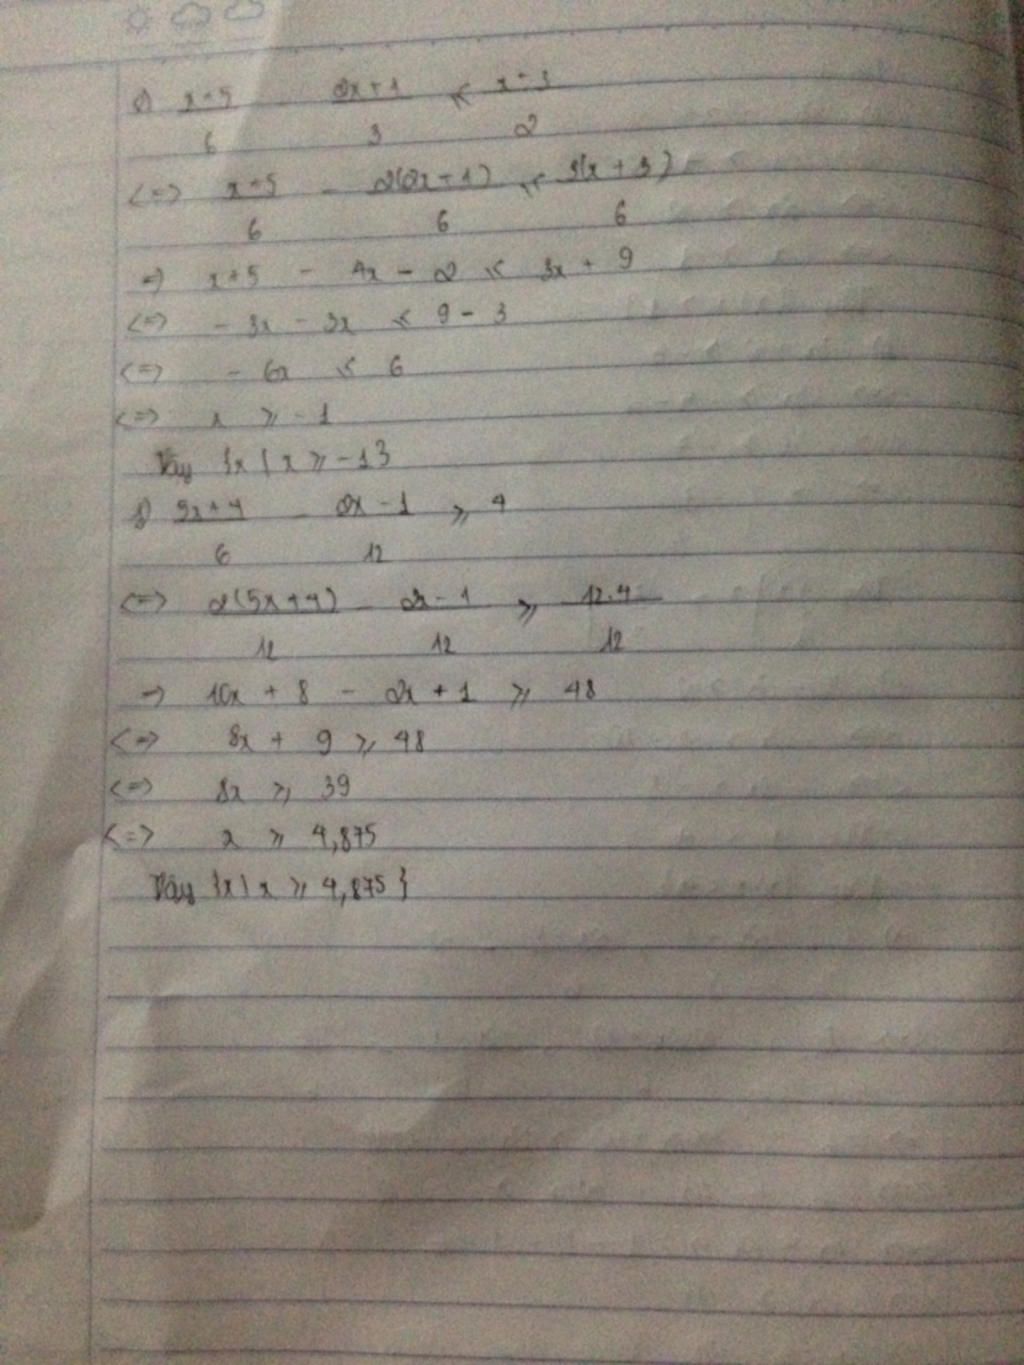 e) x+5 - 2x+1 ≤ x+3
6 3 2
<=> x+5 - 2(2x+1) ≤ 3(x+3)
6 6 6
=> x+5 - 4x - 2 ≤ 3x + 9
<=> - 3x - 3x ≤ 9 - 3
<=> - 6x ≤ 6
<=> x ≥ - 1
Vậy {x | x ≥ -1}
f) 5x+4 - 2x-1 ≥ 4
6 12
<=> 2(5x+4) - 2x-1 ≥ 12.4
12 12 12
=> 10x + 8 - 2x + 1 ≥ 48
<=> 8x + 9 ≥ 48
<=> 8x ≥ 39
<=> x ≥ 4,875
Vậy {x | x ≥ 4,875}